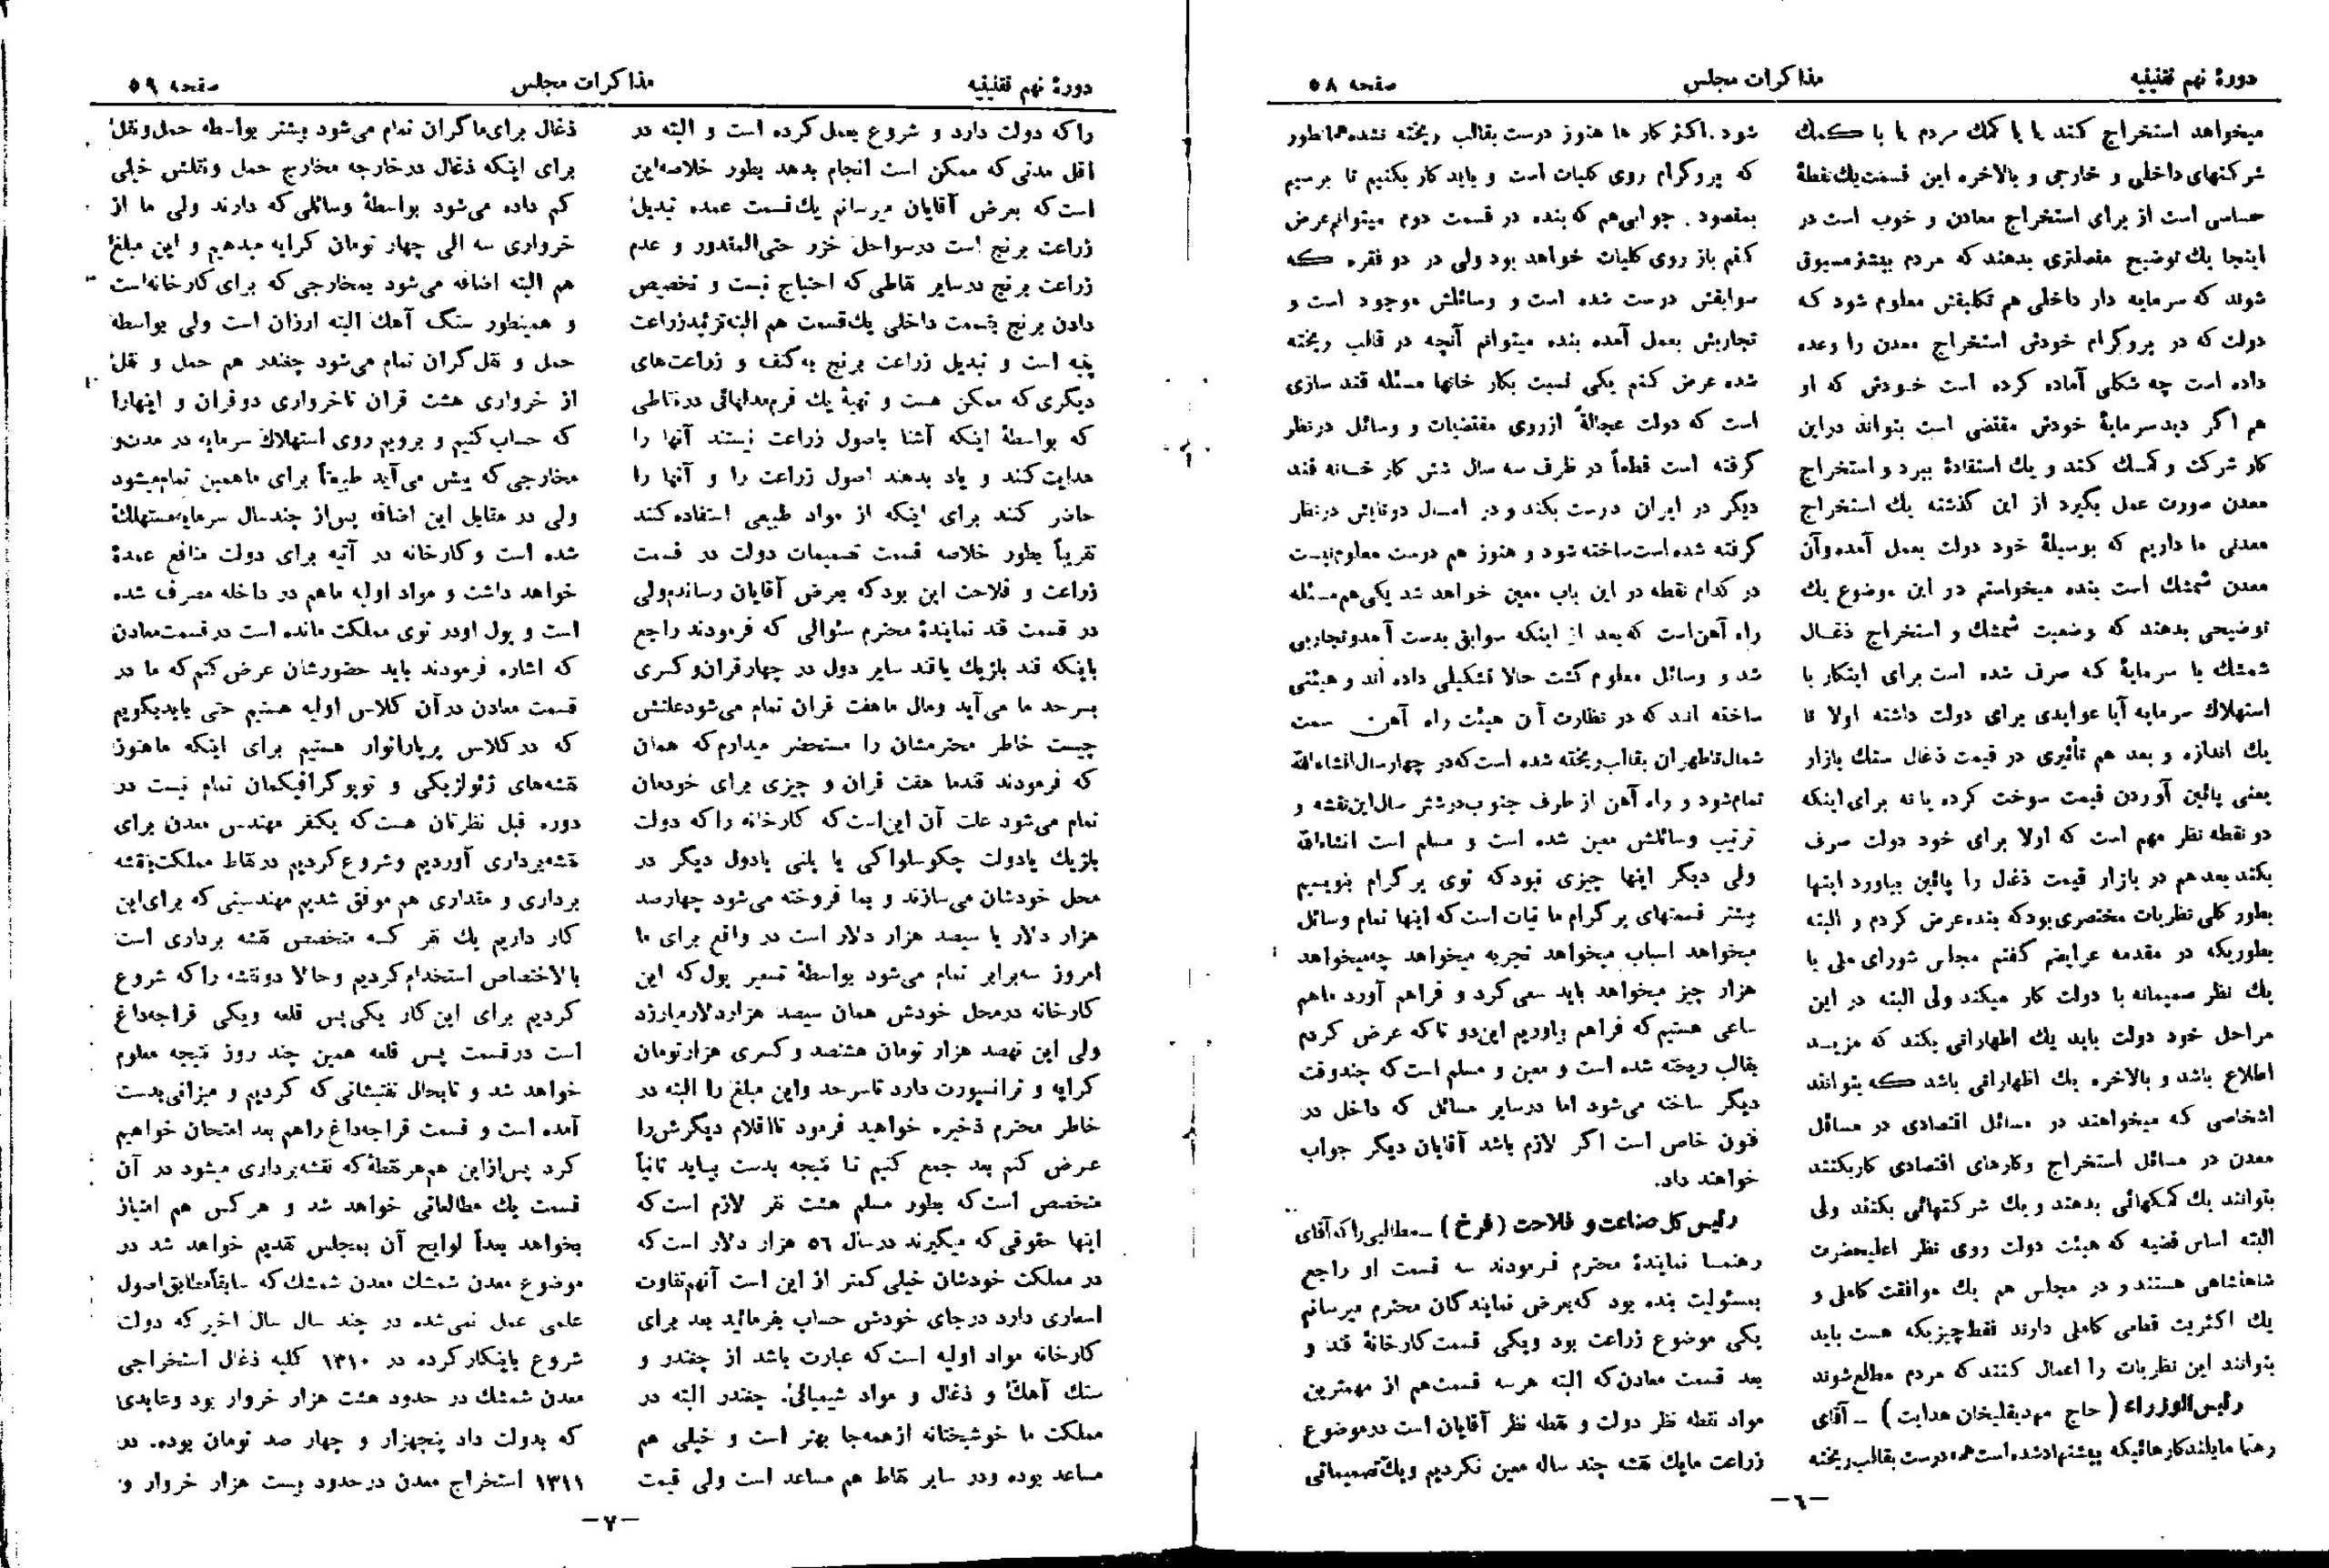 دورهٔ نهم تقنینیه
مذاکرات مجلس
صفحه ۵۸
میخواهد استخراج کند یا با کمک مردم یا با کمک
شرکتهای داخلی و خارجی و بالاخره این قسمت یك نقطهٔ
حساسی است از برای استخراج معادن و خوب است در
اینجا یك توضیح مفصلتری بدهند که مردم بیشتر مسبوق
شوند که سرمایه دار داخلی هم تکلیفش معلوم شود که
دولت که در پروگرام خودش استخراج معدن را وعده
داده است چه شکلی آماده کرده است خودش که او
هم اگر دید سرمایهٔ خودش مقتضی است بتواند دراین
کار شرکت و کمك کند و یك استفادهٔ ببرد و استخراج
معدن صورت عمل بگیرد از این گذشته یك استخراج
معدنی ما داریم که بوسیلهٔ خود دولت بعمل آمده وآن
معدن شمشك است بنده میخواستم در این موضوع یك
توضیحی بدهند که وضعیت شمشك و استخراج ذغال
شمشك با سرمایهٔ که صرف شده است برای اینکار با
استهلاك سرمایه آیا عوایدی برای دولت داشته اولا تا
یك اندازه و بعد هم تأثیری در قیمت ذغال سنك بازار
یعنی پائین آوردن قیمت سوخت کرده یا نه برای اینکه
دو نقطه نظر مهم است که اولا برای خود دولت صرف
بکند بعد هم در بازار قیمت ذغال را پائین بیاورد اینها
بطور کلی نظریات مختصری بود که بنده عرض کردم و البته
بطوریکه در مقدمه عرایضم گفتم مجلس شورای ملی با
یك نظر صمیمانه با دولت کار میکند ولی البته در این
مراحل خود دولت باید یك اظهاراتی بکند که مزید
اطلاع باشد و بالاخره یك اظهاراتی باشد که بتوانند
اشخاصی که میخواهند در مسائل اقتصادی در مسائل
معدن در مسائل استخراج وکارهای اقتصادی کاربکنند
بتوانند یك کمکهائی بدهند و یك شرکتهائی بکنند ولی
البته اساس قضیه که هیئت دولت روی نظر اعلیحضرت
شاهنشاهی هستند و در مجلس هم یك موافقت کاملی و
یك اکثریت قطعی کاملی دارند فقط چیزیکه هست باید
بتوانند این نظریات را اعمال کنند که مردم مطلع شوند
رئیس الوزراء ( حاج مهدیقلیخان هدایت ) ـ آقای
رهنما مایلند کارهائیکه پیشنهاد شده است همه درست بقالب ریخته
شود . اکثر کار ها هنوز درست بقالب ریخته نشده همانطور
که پروگرام روی کلیات است و باید کار بکنیم تا برسیم
بمقصود . جوابی هم که بنده در قسمت دوم میتوانم عرض
کنم باز روی کلیات خواهد بود ولی در دو فقره که
سوابقش درست شده است و وسائلش موجود است و
تجاربش بعمل آمده بنده میتوانم آنچه در قالب ریخته
شده عرض کنم یکی نسبت بکار خانها مسئله قند سازی
است که دولت عجالةً ازروی مقتضیات و وسائل درنظر
گرفته است قطعاً در ظرف سه سال شش کار خانه قند
دیگر در ایران درست بکند و در امسال دوتایش درنظر
گرفته شده است ساخته شود و هنوز هم درست معلوم نیست
در کدام نقطه در این باب معین خواهد شد یکی هم مسئله
راه آهن است که بعد از اینکه سوابق بدست آمد و تجاربی
شد و وسائل معلوم گشت حالا تشکیلی داده اند و هیئتی
ساخته اند که در نظارت آن هیئت راه آهن سمت
شمال تا طهران بقالب ریخته شده است که در چهار سال انشاءالله
تمام شود و راه آهن از طرف جنوب در شش سال این نقشه و
ترتیب وسائلش معین شده است و مسلم است انشاءالله
ولی دیگر اینها چیزی نبود که توی پرگرام بنویسیم
بیشتر قسمتهای پرگرام ما نیات است که اینها تمام وسائل
میخواهد اسباب میخواهد تجربه میخواهد چه میخواهد
هزار چیز میخواهد باید سعی کرد و فراهم آورد ما هم
ساعی هستیم که فراهم بیاوریم این دو تا که عرض کردم
بقالب ریخته شده است و معین و مسلم است که چندوقت
دیگر ساخته می شود اما درسایر مسائل که داخل در
فنون خاص است اگر لازم باشد آقایان دیگر جواب
خواهند داد.
رئیس کل صناعت و فلاحت ( فرخ ) ـ مطالبی را که آقای
رهنما نمایندهٔ محترم فرمودند سه قسمت او راجع
بمسئولیت بنده بود که بعرض نمایندگان محترم میرسانم
یکی موضوع زراعت بود ویکی قسمت کارخانهٔ قند و
بعد قسمت معادن که البته هرسه قسمت هم از مهمترین
مواد نقطه نظر دولت و نقطه نظر آقایان است در موضوع
زراعت مایك نقشه چند ساله معین نکردیم و یك تصمیماتی
ـ ٦ ـ
دورهٔ نهم تقنینیه
مذاکرات مجلس
صفحه ۵۹
را که دولت دارد و شروع بعمل کرده است و البته در
اقل مدتی که ممکن است انجام بدهد بطور خلاصه این
است که بعرض آقایان میرسانم یك قسمت عمده تبدیل
زراعت برنج است درسواحل خزر حتی المقدور و عدم
زراعت برنج درسایر نقاطی که احتیاج نیست و تخصیص
دادن برنج بقسمت داخلی یك قسمت هم البته تزئید زراعت
پنبه است و تبدیل زراعت برنج به کنف و زراعت های
دیگری که ممکن هست و تهیهٔ یك فرم مدلهائی درنقاطی
که بواسطهٔ اینکه آشنا باصول زراعت نیستند آنها را
هدایت کنند و یاد بدهند اصول زراعت را و آنها را
حاضر کنند برای اینکه از مواد طبیعی استفاده کنند
تقریباً بطور خلاصه قسمت تصمیمات دولت در قسمت
زراعت و فلاحت این بود که بعرض آقایان رساندم ولی
در قسمت قند نمایندهٔ محترم سئوالی که فرمودند راجع
باینکه قند بلژیك یا قند سایر دول در چهار قران و کسری
بسرحد ما می آید و مال ما هفت قران تمام می شود علتش
چیست خاطر محترمشان را مستحضر میدارم که همان
که فرمودند قندما هفت قران و چیزی برای خودمان
تمام می شود علت آن این است که کارخانه را که دولت
بلژیك یا دولت چکوسلواکی یا پلنی یا دول دیگر در
محل خودشان می سازند و بما فروخته می شود چهارصد
هزار دلار یا سیصد هزار دلار است در واقع برای ما
امروز سه برابر تمام می شود بواسطهٔ تسعیر پول که این
کارخانه درمحل خودش همان سیصد هزاردلار میارزد
ولی این نهصد هزار تومان هشتصد و کسری هزارتومان
کرایه و ترانسپورت دارد تا سرحد واین مبلغ را البته در
خاطر محترم ذخیره خواهید فرمود تا اقلام دیگرش را
عرض کنم بعد جمع کنیم تا نتیجه بدست بیاید ثانیاً
متخصص است که بطور مسلم هشت نفر لازم است که
اینها حقوقی که میگیرند درسال ۵٦ هزار دلار است که
در مملکت خودشان خیلی کمتر از این است آنهم تفاوت
اسعاری دارد درجای خودش حساب بفرمائید بعد برای
کارخانه مواد اولیه است که عبارت باشد از چغندر و
سنك آهك و ذغال و مواد شیمیائی. چغندر البته در
مملکت ما خوشبختانه ازهمه جا بهتر است و خیلی هم
مساعد بوده ودر سایر نقاط هم مساعد است ولی قیمت
ذغال برای ما گران تمام می شود بیشتر بواسطه حمل و نقل
برای اینکه ذغال درخارجه مخارج حمل و نقلش خیلی
کم داده می شود بواسطهٔ وسائلی که دارند ولی ما از
خرواری سه الی چهار تومان کرایه میدهیم و این مبلغ
هم البته اضافه می شود بمخارجی که برای کارخانه است
و همینطور سنگ آهك البته ارزان است ولی بواسطه
حمل و نقل گران تمام می شود چغندر هم حمل و نقل
از خرواری هشت قران تا خرواری دوقران و اینهارا
که حساب کنیم و برویم روی استهلاك سرمایه در مدت و
مخارجی که پیش می آید طبیعتاً برای ما همین تمام میشود
ولی در مقابل این اضافه پس از چند سال سرمایه مستهلك
شده است و کارخانه در آتیه برای دولت منافع عمدهٔ
خواهد داشت و مواد اولیه ما هم در داخله مصرف شده
است و پول اودر توی مملکت مانده است در قسمت معادن
که اشاره فرمودند باید حضورشان عرض کنم که ما در
قسمت معادن در آن کلاس اولیه هستیم حتی باید بگویم
که درکلاس پرپاراتوار هستیم برای اینکه ما هنوز
نقشه های ژئولژیکی و توپوگرافیکمان تمام نیست در
دوره قبل نظرتان هست که یکنفر مهندس معدن برای
نقشه برداری آوردیم وشروع کردیم درنقاط مملکت بنقشه
برداری و مقداری هم موفق شدیم مهندسینی که برای این
کار داریم یك نفر که متخصص نقشه برداری است
بالاختصاص استخدام کردیم وحالا دونقشه را که شروع
کردیم برای این کار یکی پس قلعه ویکی قراجه داغ
است درقسمت پس قلعه همین چند روز نتیجه معلوم
خواهد شد و تابحال تفتیشاتی که کردیم و میزانی بدست
آمده است و قسمت قراجه داغ راهم بعد امتحان خواهیم
کرد پس ازاین هم هر نقطهٔ که نقشه برداری میشود در آن
قسمت یك مطالعاتی خواهد شد و هرکس هم امتیاز
بخواهد بعداً لوایح آن بمجلس تقدیم خواهد شد در
موضوع معدن شمشك معدن شمشك که سابقاً مطابق اصول
علمی عمل نمی شده در چند سال سال اخیر که دولت
شروع باینکار کرده در ۱۳۱۰ کلیه ذغال استخراجی
معدن شمشك در حدود هشت هزار خروار بود وعایدی
که بدولت داد پنجهزار و چهار صد تومان بوده. در
۱۳۱۱ استخراج معدن درحدود بیست هزار خروار و
ـ ۷ ـ